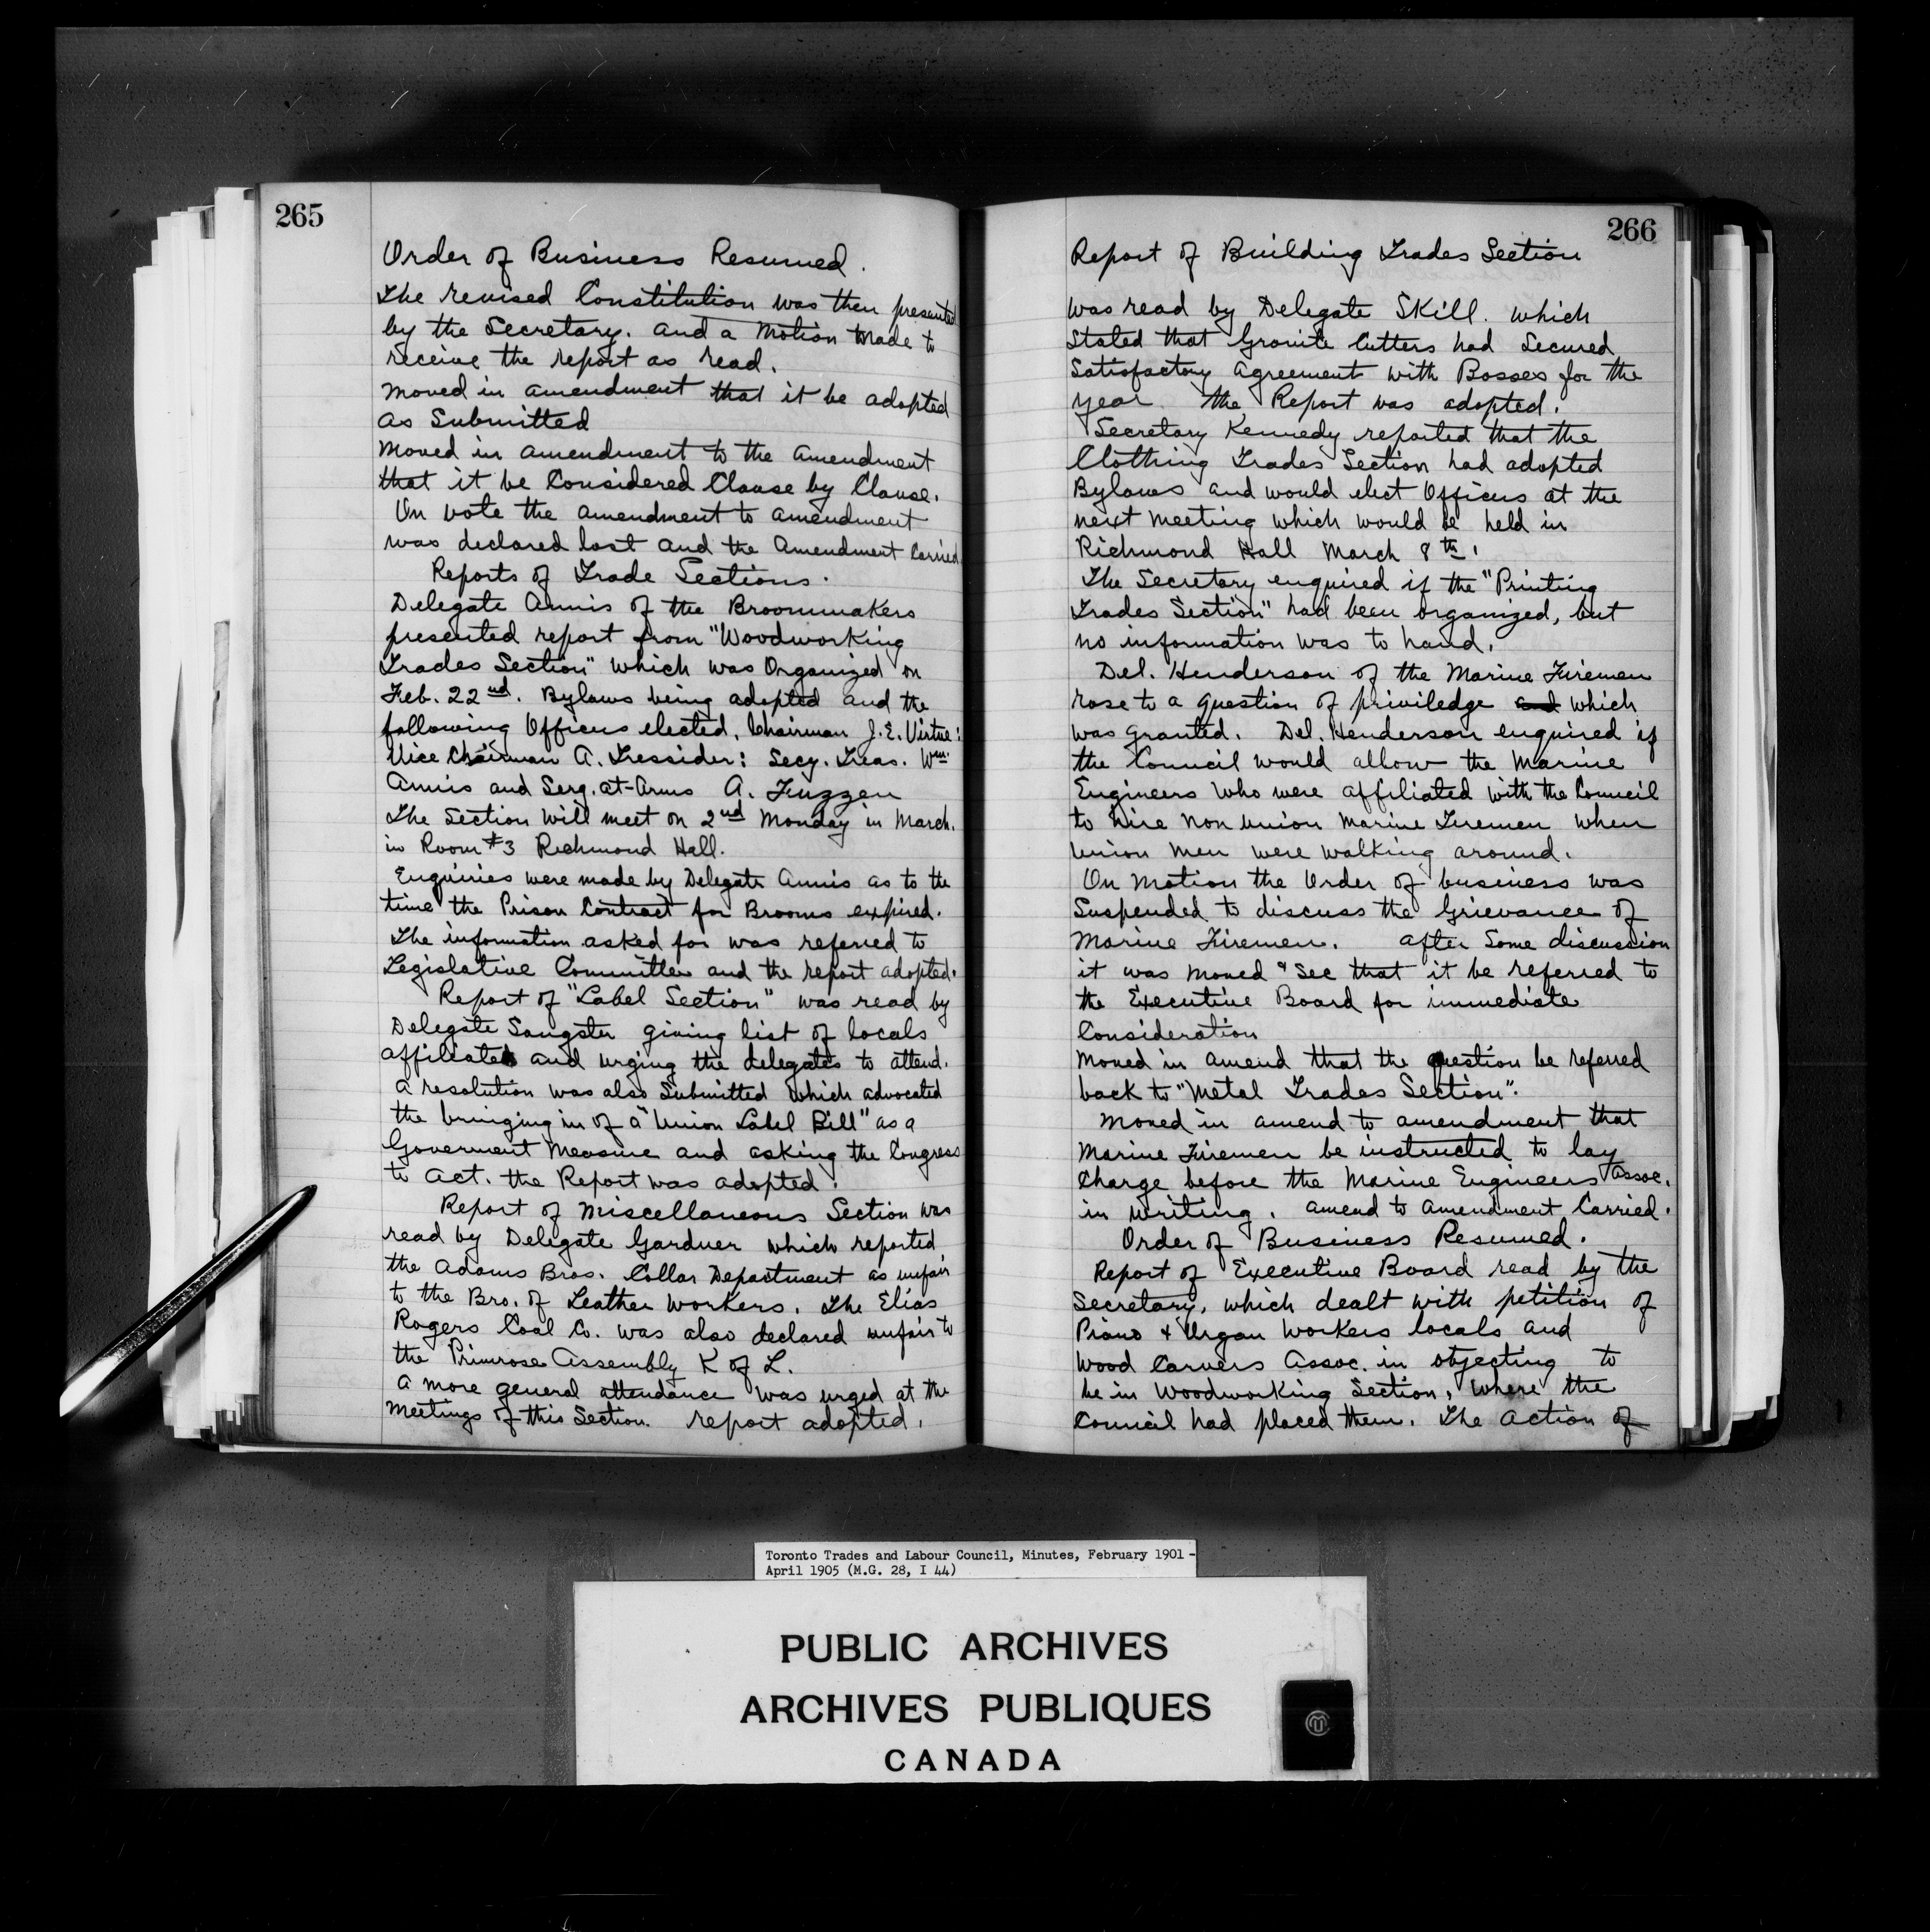 265
Order of Business Resumed.
The revised Constitution was then presented
by the Secretary. and a Motion made to
receive the report as read.
Moved in amendment that it be adopted
as Submitted
Moved in amendment to the amendment
that it be Considered Clause by Clause.
On vote the amendment to amendment
was declared lost and the Amendment Carried
Reports of Trade Sections.
Delegate Annis of the Broommakers
presented report from "Woodworking
Trades Section" which was Organized on
Feb. 22nd. Bylaws being adopted and the
following Officers elected, Chairman J. E. Virtue:
Vice Chairman A. Tressider: Secy. Treas. Wm
Annis and Serg. at-Arms A. Fuzzen
The Section will meet on 2nd Monday in March.
in Room #3 Richmond Hall.
Enquiries were made by Delegate Annis as to the
time the Prison Contract for Brooms expired.
The information asked for was referred to
Legislative Committee and the report adopted.
Report of "Label Section" was read by
Delegate Sangster giving list of locals
affiliated and urging the delegates to attend.
A resolution was also Submitted which advocated
the bringing in of a "Union Label Bill" as a
Goverment Measure and asking the Congress
to Act. the Report was adopted.
Report of Miscellaneous Section was
read by Delegate Gardner which reported
the Adams Bros. Collar Department as unfair
to the Bro. of Leather Workers. The Elias
Rogers Coal Co. was also declared unfair to
the Primrose Assembly K of L.
A more general attendance was urged at the
Meetings of this Section. report adopted.
266
Report of Building Trades Section
was read by Delegate Skill. which
Stated that Granite Cutters had Secured
Satisfactory Agreement with Bosses for the
year the Report was adopted.
Secretary Kennedy reported that the
Clothing Trades Section had adopted
Bylaws and would elect Officers at the
next meeting which would be held in
Richmond Hall March 8th.
The Secretary enquired if the "Printing
Trades Section" had been organized, but
no information was to hand.
Del. Henderson of the Marine Firemen
rose to a question of priviledge and which
was granted. Del. Henderson enquired if
the Council would allow the Marine
Engineers who were affiliated with the Council
to hire non union Marine Firemen when
Union Men were walking around.
On Motion the Order of business was
Suspended to discuss the Grievance of
Marine Firemen. after Some discussion
it was Moved & Sec that it be referred to
the Executive Board for immediate
Consideration
Moved in amend that the question be referred
back to "Metal Trades Section".
Moved in amend to amendment that
Marine Firemen be instructed to lay
Charge before the Marine Engineers Assoc.
in writing. amend to amendment Carried.
Order of Business Resumed.
Report of Executive Board read by the
Secretary, which dealt with petition of
Piano & Organ Workers locals and
Wood Carvers Assoc. in objecting to
be in Woodworking Section, where the
Council had placed them. The action of
Toronto Trades and Labour Council, Minutes, February 1901 -
April 1905 (M.G. 28, I 44)
PUBLIC ARCHIVES
ARCHIVES PUBLIQUES
CANADA